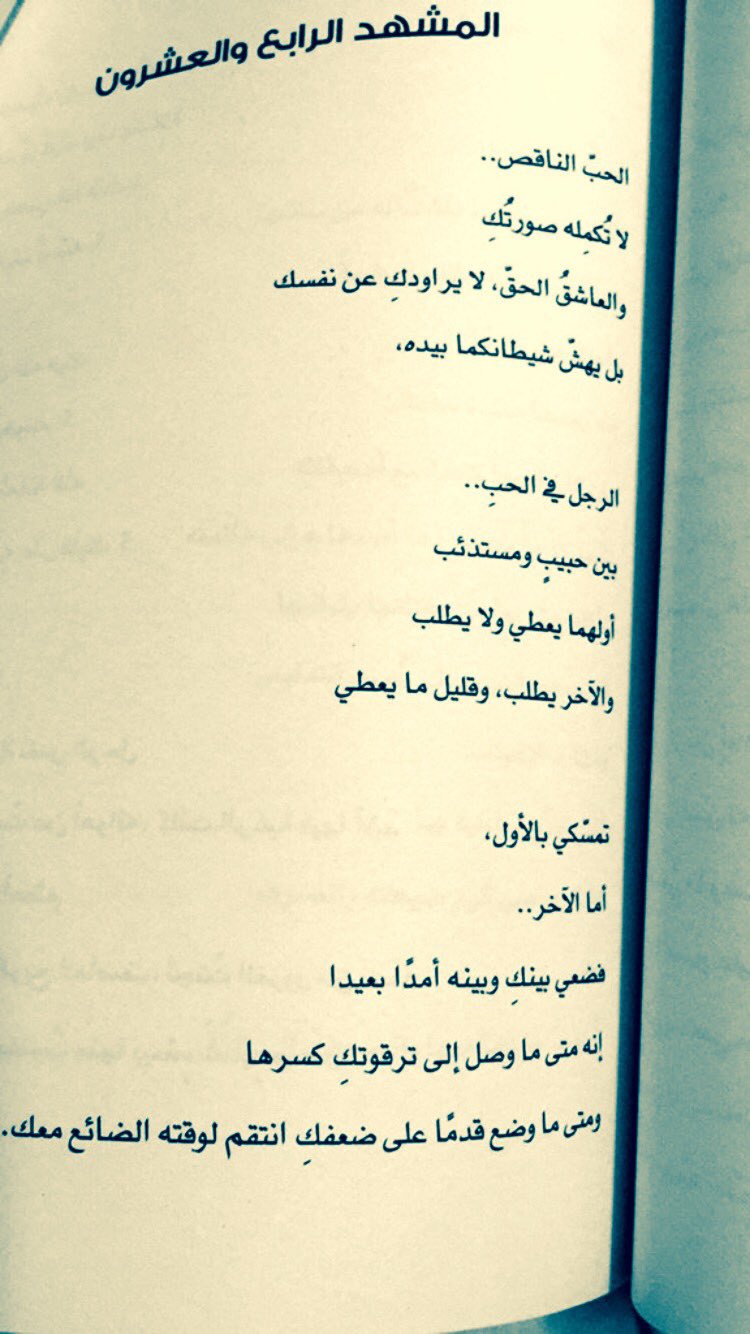 المشهد الرابع والعشرون
الحبّ الناقص..
لا تُكمِله صورتُكِ
والعاشقُ الحقّ، لا يراودكِ عن نفسك
بل يهشّ شيطانكما بيده،
الرجل في الحبِ..
بين حبيبٍ ومستذئب
أولهما يعطي ولا يطلب
والآخر يطلب، وقليل ما يعطي
تمسّكي بالأول،
أما الآخر..
فضعي بينكِ وبينه أمدًا بعيدا
إنه متى ما وصل إلى ترقوتكِ كسرها
ومتى ما وضع قدمًا على ضعفكِ انتقم لوقته الضائع معك.